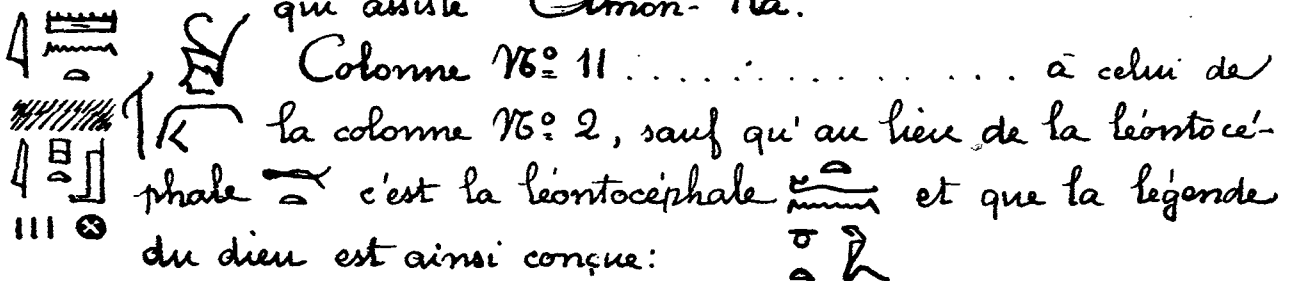 qui assiste Amon-Ra.
Colonne Nº 11 . . . . . . . . . . . . . . à celui de
la colonne Nº 2, sauf qu'au lieu de la léontocé-
phale c'est la léontocéphale et que la légende
du dieu est ainsi conçue: